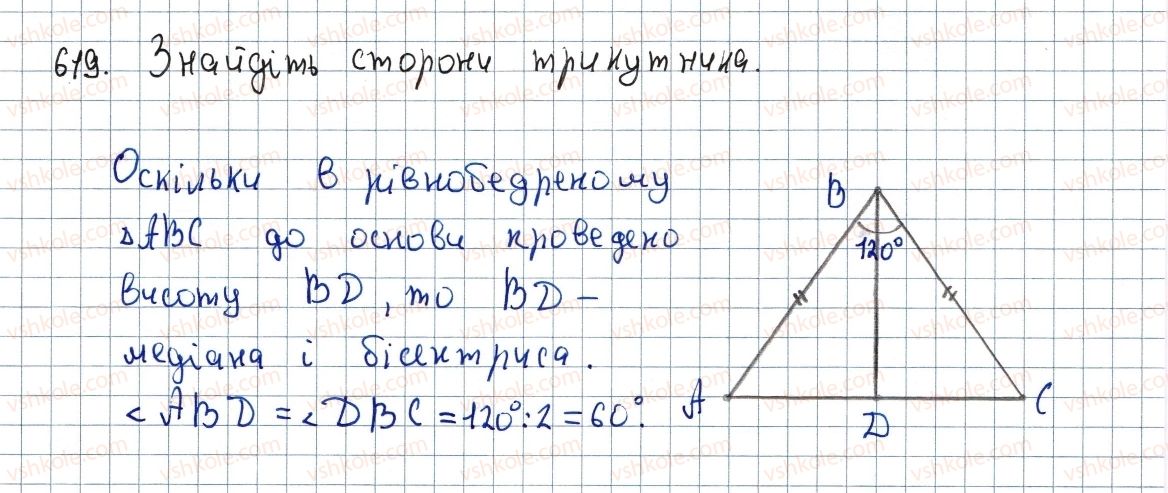 619. Знайдіть сторони трикутника.
Оскільки в рівнобедреному
△ABC до основи проведено
висоту BD, то BD –
медіана і бісектриса.
∠ABD = ∠DBC = 120°:2 = 60°.
B
120°
A
D
C
vshkole.com